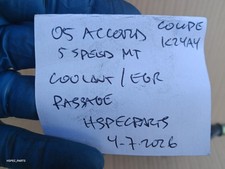 05 ACCORD COUPE
5 SPEED MT K24A4
COOLANT / EGR
PASSAGE
HSPECPARTS
4-7-2026